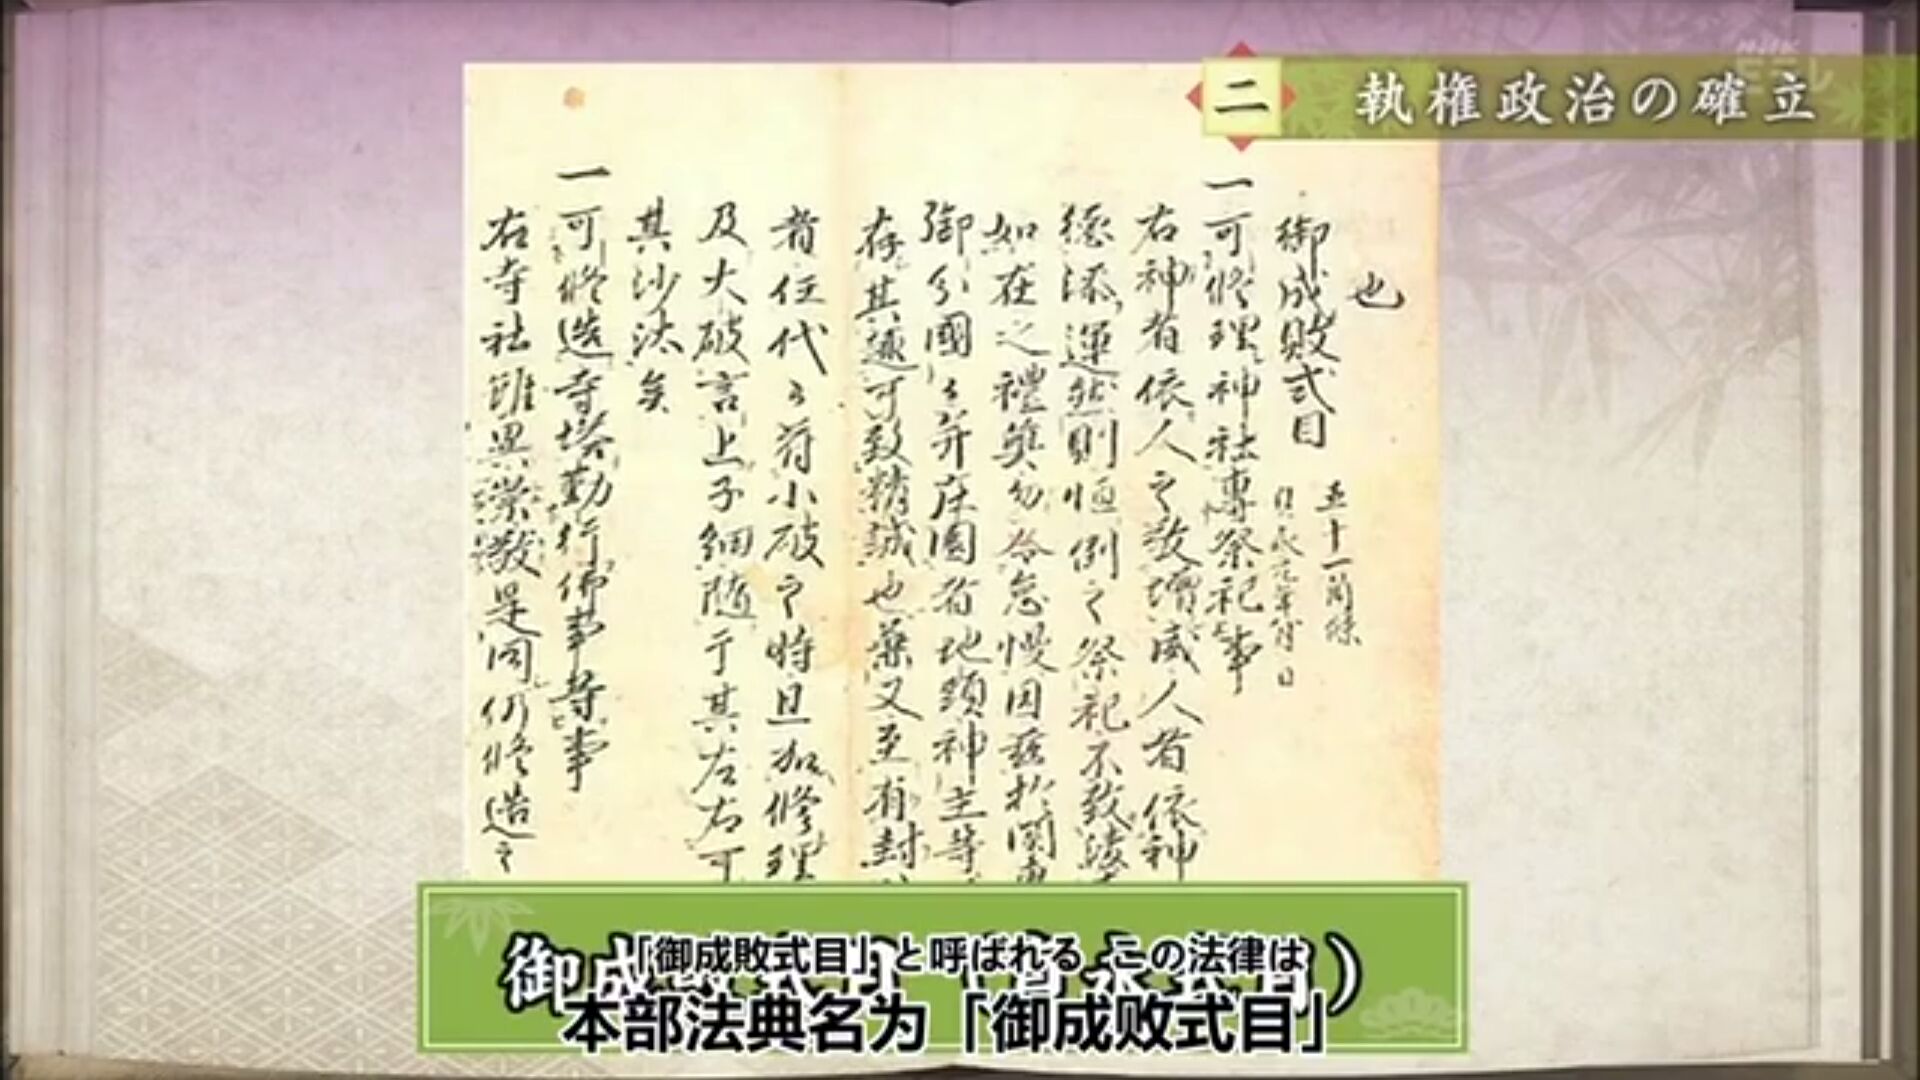 NHK
Eテレ
二
執権政治の確立
也
御成敗式目
五十一箇條
一可修理神社專祭祀事
右神者依人之敬增威人者依神
德添運然則恒例之祭祀不致
如在之禮奠勿令怠慢因茲於關東
御分國々并庄園者地頭神主等
存其趣可致精誠也兼又至有封
者任代々符小破之時且加修理
及大破言上子細隨于其左右可
其沙汰矣
一可修造寺塔勤行佛事等事
右寺社雖異崇敬是同仍修造之
「御成敗式目」と呼ばれる この法律は
本部法典名为「御成败式目」